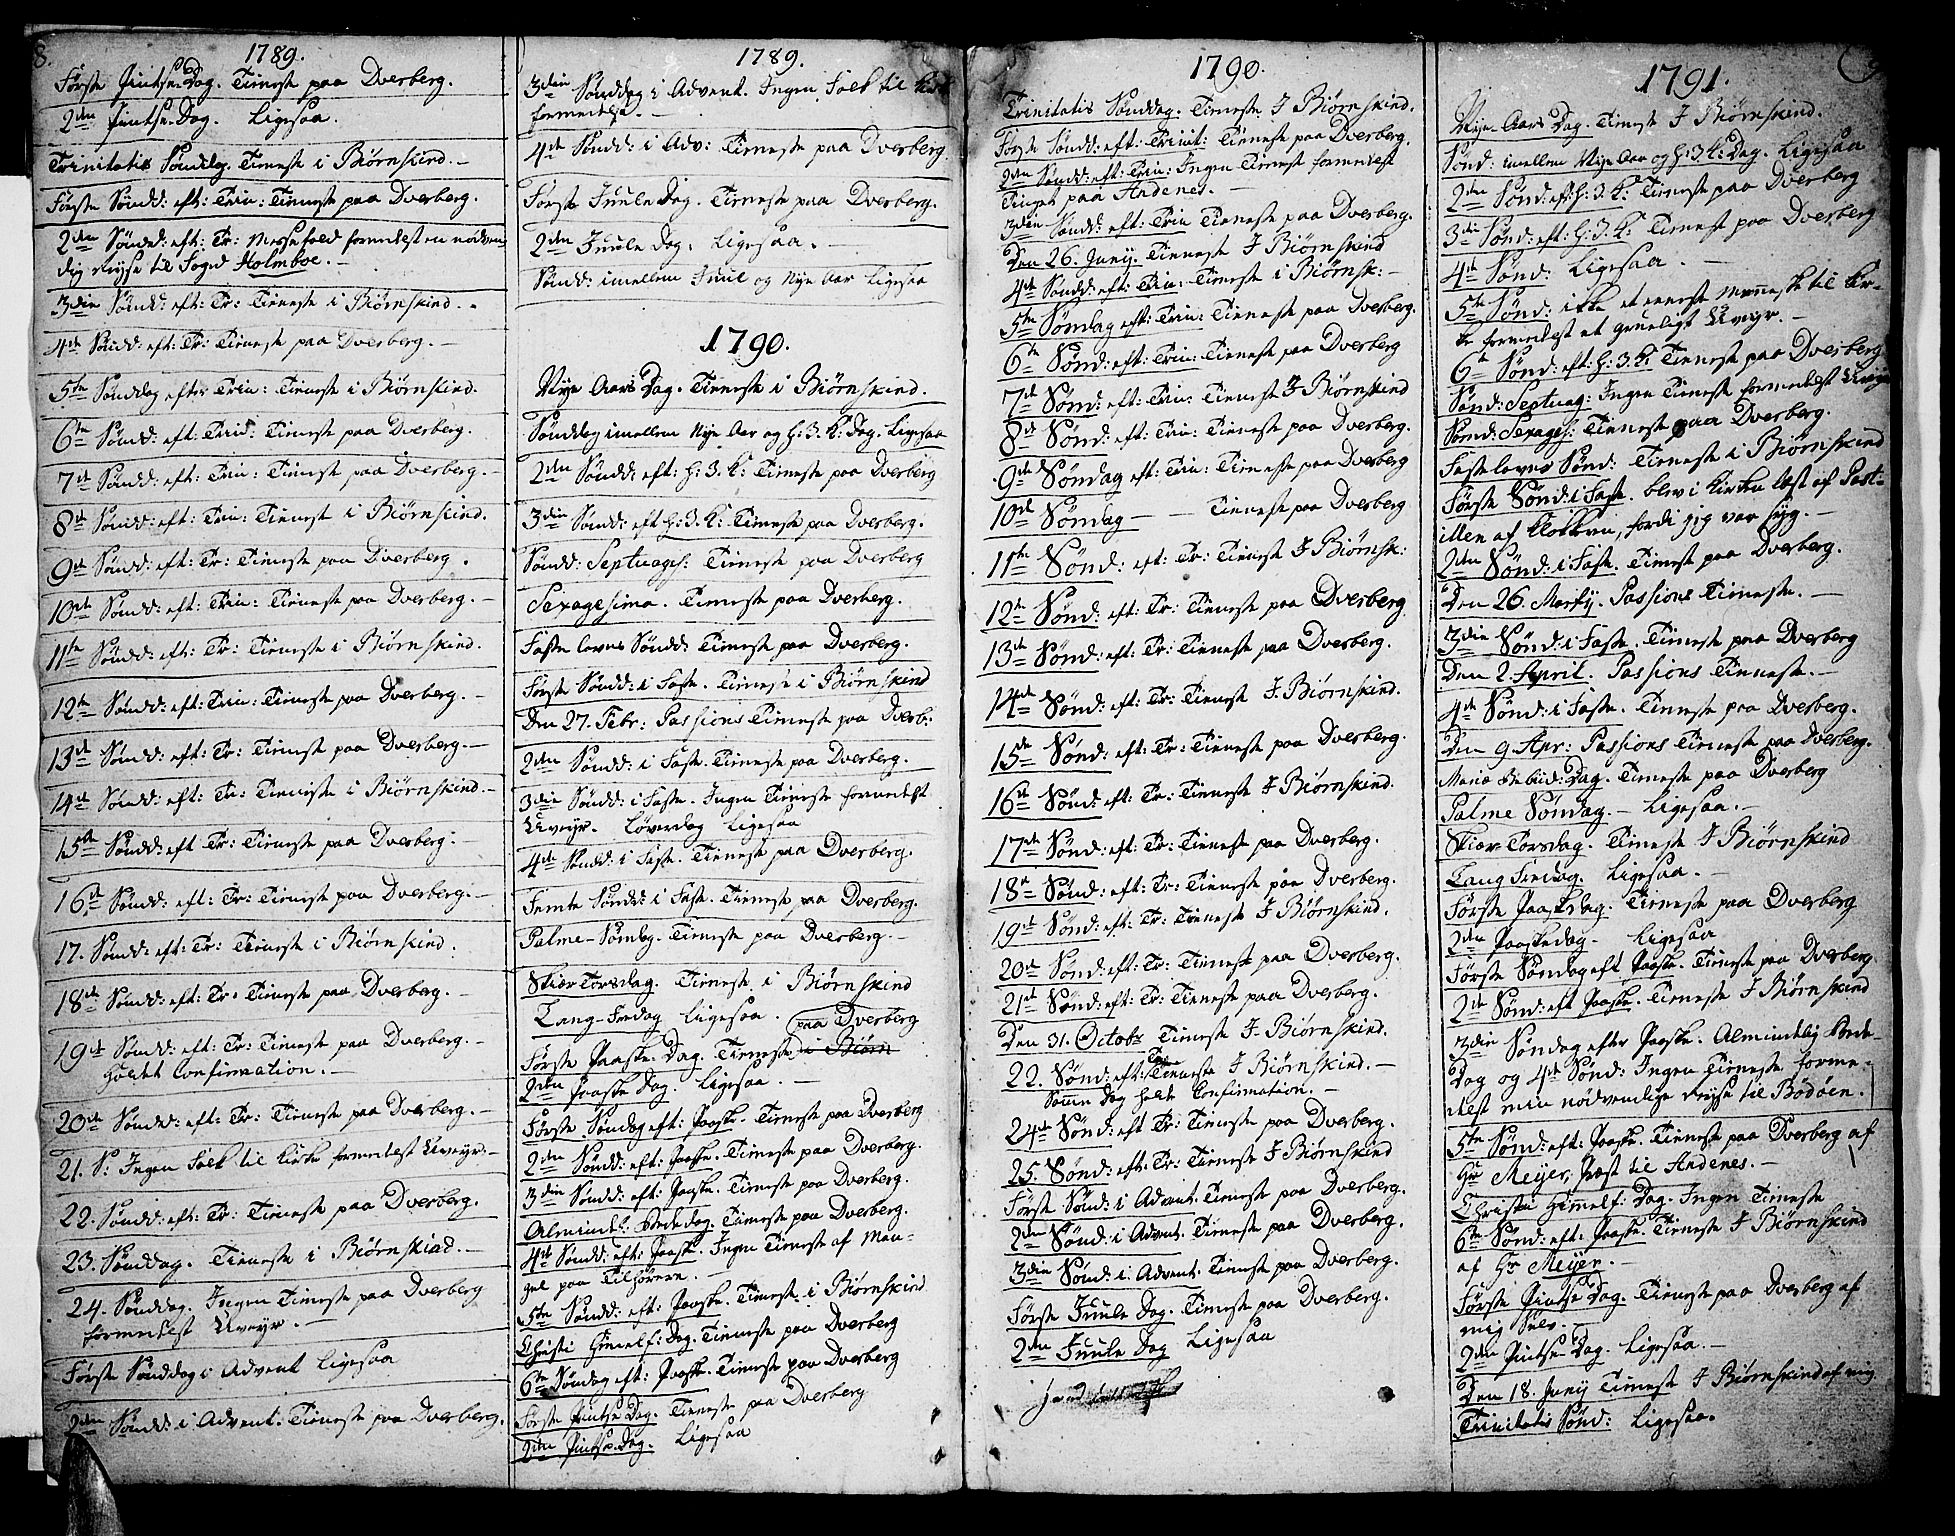 8.
1789.
Første Pintse-Dag. Tieneste paa Dverberg.
2den Pintse-Dag. Ligesaa.
Trinitatis Sönddag. Tieneste i Biørnskind.
Første Söndd: eft: Trin: Tieneste paa Dverberg.
2den Söndd: eft: Tr: Messefald formedelst en nødven
dig Reyse til Foged Holmboe.
3die Söndd: eft: Tr: Tieneste i Biørnskind.
4de Söndd: eft: Tr: Tieneste paa Dverberg.
5te Sönddag efter Trin: Tieneste i Biørnskind.
6te Söndd: eft: Trin: Tieneste paa Dverberg.
7de Söndd: eft: Trin: Tieneste paa Dverberg.
8de Söndd: eft: Trin: Tieneste i Biørnskind.
9de Söndd: eft: Tr: Tieneste paa Dverberg.
10de Söndd: eft: Trin: Tieneste paa Dverberg.
11te Söndd: eft: Tr: Tieneste i Biørnskind.
12te Söndd: eft: Trin: Tieneste paa Dverberg.
13de Söndd: eft: Tr: Tieneste paa Dverberg.
14de Söndd: eft: Tr: Tieneste i Biørnskind.
15de Söndd: eft Tr: Tieneste paa Dverberg.
16de Söndd: eft: Tr: Tieneste paa Dverberg.
17. Söndd: eft: Tr: Tieneste i Biørnskind.
18de Söndd: eft: Tr: Tieneste paa Dverberg.
19de Söndd: eft: Tr: Tieneste paa Dverberg.
Holdt Confirmation.
20de Söndd: eft: Tr: Tieneste paa Dverberg.
21. S: Ingen Folk til Kirke formedelst Uveyr.
22. Söndd: eft: Tr: Tieneste paa Dverberg.
23. Sönddag. Tieneste i Biørnskind.
24. Sönddag. Ingen Tieneste paa Dverberg
formedelst Uveyr.
Første Sönddag i Advent Ligesaa
2den Söndd: i Advent. Tieneste paa Dverberg.
1789.
3die Sönddag i Advent. Ingen Folk til Kirke
formedelst
4de Söndd: i Adv: Tieneste paa Dverberg
Første Juule Dag. Tieneste paa Dverberg.
2den Juule Dag. Ligesaa.
Söndd: imellem Juul og Nye Aar Ligesaa
1790.
Nye Aars Dag. Tieneste i Biørnskind.
Sönddag imellem Nye Aar og H: 3. K: Dag. Ligesaa
2den Söndd: eft: H: 3. K: Tieneste paa Dverberg
3die Söndd: eft H: 3. K: Tieneste paa Dverberg.
Söndd: Septuages: Tieneste paa Dverberg
Sexagesima. Tieneste paa Dverberg.
Faste lavns Söndd: Tieneste paa Dverberg.
Første Söndd: i Faste. Tieneste i Biørnskind
Den 27. Febr: Passions Tieneste paa Dverb:
2den Söndd: i Faste. Tieneste paa Dverberg.
3die Söndd: i Faste. Ingen Tieneste formedelst
Uveyr. Løverdag Ligesaa
4de Söndd: i Faste. Tieneste paa Dverberg.
Femte Söndd: i Faste. Tieneste paa Dverberg.
Palme-Söndag. Tieneste paa Dverberg.
Skiær Torsdag. Tieneste i Biørnskind
Lang-Fredag Ligesaa.
paa Dverberg
Første Paaske-Dag. Tieneste i Biørn
2den Paaske Dag. Ligesaa.
Første Söndag eft: Paaske. Tieneste paa Dverberg
2den Söndd: eft: Paaske. Tieneste paa Dverberg.
3die Söndd: eft: Paaske. Tieneste paa Dverberg.
Almindel: Bededag. Tieneste paa Dverberg.
4de Söndd: eft: Paaske. Ingen Tieneste af Man-
gel paa Tilhørere.
5te Söndd: eft: Paaske. Tieneste i Biørnskind
Christi Himelf: Dag. Tieneste paa Dverberg
6te Söndag eft: Paaske. Tieneste paa Dverberg
Første Pintse Dag. Tieneste paa Dverberg
2den Pintse-Dag. Ligesaa
1790.
Trinitatis Sönddag. Tieneste I Biørnskind.
Første Söndd: eft: Trinit: Tieneste paa Dverberg.
2den Söndd: eft: Trin: Ingen Tieneste formedelst
Tinget paa Andenes.
3die Söndd: eft: Trin Tieneste paa Dverberg.
Den 26. Junij. Tieneste I Biørnskind
4de Söndd: eft: Trin: Tieneste i Biørnsk:
5te Søndag eft: Trin: Tieneste paa Dverberg.
6te Sønd: eft: Trin: Tieneste paa Dverberg
7de Sønd: eft: Trin: Tieneste I Biørnskind
8de Sønd: eft: Trin: Tieneste paa Dverberg.
9de Søndag eft: Trin: Tieneste paa Dverberg
10de Søndag — — Tieneste paa Dverberg
11te Sønd: eft: Tr: Tieneste I Biørnsk:
12te Sønd: eft: Tr: Tieneste paa Dverberg
13de Sønd: eft: Tr: Tieneste paa Dverberg.
14de Sønd: eft: Tr: Tieneste I Biørnskind.
15de Sønd: eft: Tr: Tieneste paa Dverberg.
16de Sønd: eft: Tr: Tieneste I Biørnskind.
17de Sønd: eft: Tr: Tieneste paa Dverberg.
18de Sønd: eft: Tr: Tieneste paa Dverberg.
19de Sønd: eft: Tr: Tieneste I Biørnskind.
20de Sønd: eft: Tr: Tieneste paa Dverberg.
21de Sønd: eft: Tr: Tieneste paa Dverberg.
Den 31. Octobr Tieneste I Biørnskind.
22. Sønd: eft: Tr: Tieneste I Biørnskind.
Samme Dag holdt Confirmation.
24de Sønd: eft Tr: Tieneste paa Dverberg.
25. Sønd: eft: Tr: Tieneste I Biørnskind
Første Sønd: i Advent. Tieneste paa Dverberg.
2den Sønd: i Advent. Tieneste paa Dverberg.
3die Sønd: i Advent. Tieneste paa Dverberg.
Første Juule Dag. Tieneste paa Dverberg.
2den Juule Dag Ligesaa
1791.
Nye-Aars Dag. Tieneste I Biørnskind.
Sønd: imellem Nye Aar og H: 3. K: Dag. Ligesaa
2den Sønd: eft H: 3. K: Tieneste paa Dverberg
3die Sønd: eft: H: 3. K: Tieneste paa Dverberg
4de Sønd: Ligesaa.
5te Sønd: ikke et eneste Menneske til Kir-
ke formedelst et grueligt Uveyr.
6te Sønd: eft: H: 3. K. Tieneste paa Dverberg
Sønd: Septuag: Ingen Tieneste formedelst Uveyr
Sønd: Sexages: Tieneste paa Dverberg.
Fastelavns Sønd: Tieneste i Biørnskind
Første Sønd: i Faste. blev i Kirken læst af Post-
illen af Klokkeren, fordi jeg var syg.
2den Sønd: i Faste. Tieneste paa Dverberg.
Den 26. Martij. Passions Tieneste.
3die Sønd: i Faste. Tieneste paa Dverberg
Den 2. April. Passions Tieneste.
4de Sønd: i Faste. Tieneste paa Dverberg.
Den 9 Apr: Passions Tieneste paa Dverberg.
Mariæ Bebud: Dag. Tieneste paa Dverberg
Palme Søndag. Ligesaa.
Skiær-Torsdag. Tieneste I Biørnskind
Lang Fredag. Ligesaa.
Første Paaskedag. Tieneste paa Dverberg
2den Paaskedag. Ligesaa
Første Søndag eft Paaske. Tieneste paa Dverberg.
2de Sønd: eft Paaske. Tieneste I Biørnskind
3die Søndag efter Paaske. Almindelig Bede-
Dag og 4de Sønd: Ingen Tieneste forme-
delst min nødvendige Reyse til Bodøen.
5te Sønd: eft: Paaske. Tieneste paa Dverberg af
Hr Meyer, Præst til Andenes.
Christi Himelf: Dag. Ingen Tieneste
6te Sønd: eft: Paaske. Tieneste I Biørnskind
af Hr Meyer.
Første Pintse Dag. Tieneste paa Dverberg af
mig Selv.
2den Pintse Dag. Ligesaa.
Den 18. Junij Tieneste I Biørnskind af mig
Trinitatis Sønd: Ligesaa.